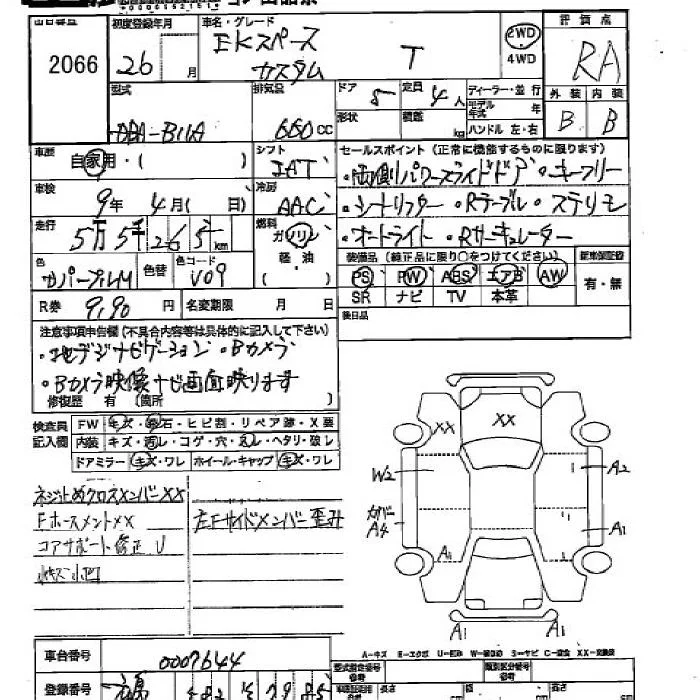 初度登録年月
車名・グレード
評価点
2066
26 月
EKスペース
カスタム
T
2WD
4WD
RA
型式
排気量
ドア 5
定員 4 人
ディーラー・並行
モデル年式 年
ハンドル 左・右
外装 内装
B B
DBA-B11A
660 CC
形状
積載 kg
車歴
自家用・( )
シフト
IAT
セールスポイント (正常に機能するものに限ります)
・両側パワースライドドア ・キーフリー
車検
9年 4月( 日)
冷房
AAC
・シートリフター ・Rテーブル ・ステリモ
走行
5万5千265 km
燃料
ガソリン
軽・油
( )
・オートライト ・Rサーキュレーター
色
色替
色コード
V09
装備品 (純正品に限り○をつけてください)
新車保証書
PS PW ABS エアB AW
有・無
SR ナビ TV 本革
R券 9,190 円
名変期限 月 日
後日品
注意事項申告欄 (不具合内容等は具体的に記入して下さい)
・地デジナビゲーション ・Bカメラ
・Bカメラ映像ナビ画面映ります
修復歴 有 (箇所 )
検査員
記入欄
FW キズ・飛石・ヒビ割・リペア跡・X要
内装 キズ・汚レ・コゲ・穴・スレ・ヘタリ・破レ
ドアミラー キズ・ワレ ホイール・キャップ キズ・ワレ
ネジ止めクロスメンバーXX
Fホースメント XX
左Fサイドメンバー歪み
コアサポート修正 U
小キズ小凹
XX
XX
W2
A2
カバー
A4
A1
A1
A1
A1
A-キズ E-エクボ U-凹み W-補修跡 S-サビ C-腐食 XX-交換済
車台番号
0007644
型式指定番号
類別区分番号
登録番号
長さ